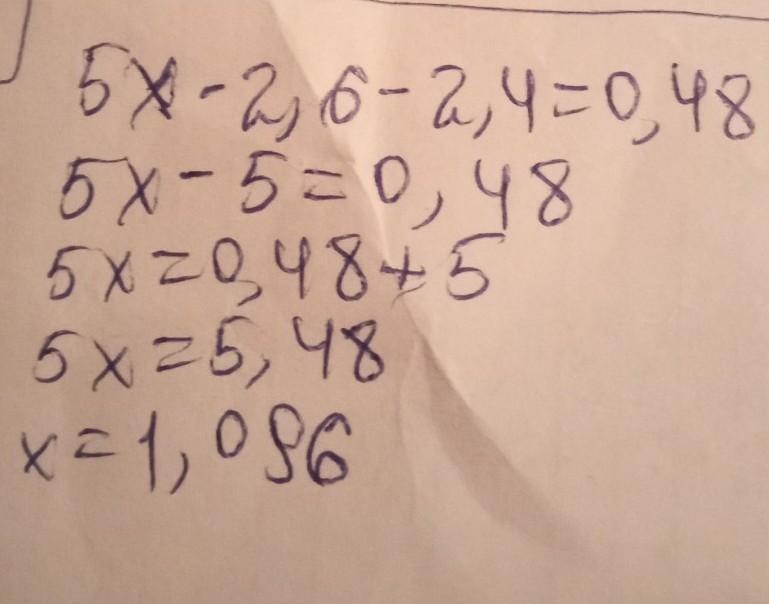 5x-2,6-2,4=0,48
5x-5=0,48
5x=0,48+5
5x=5,48
x=1,096